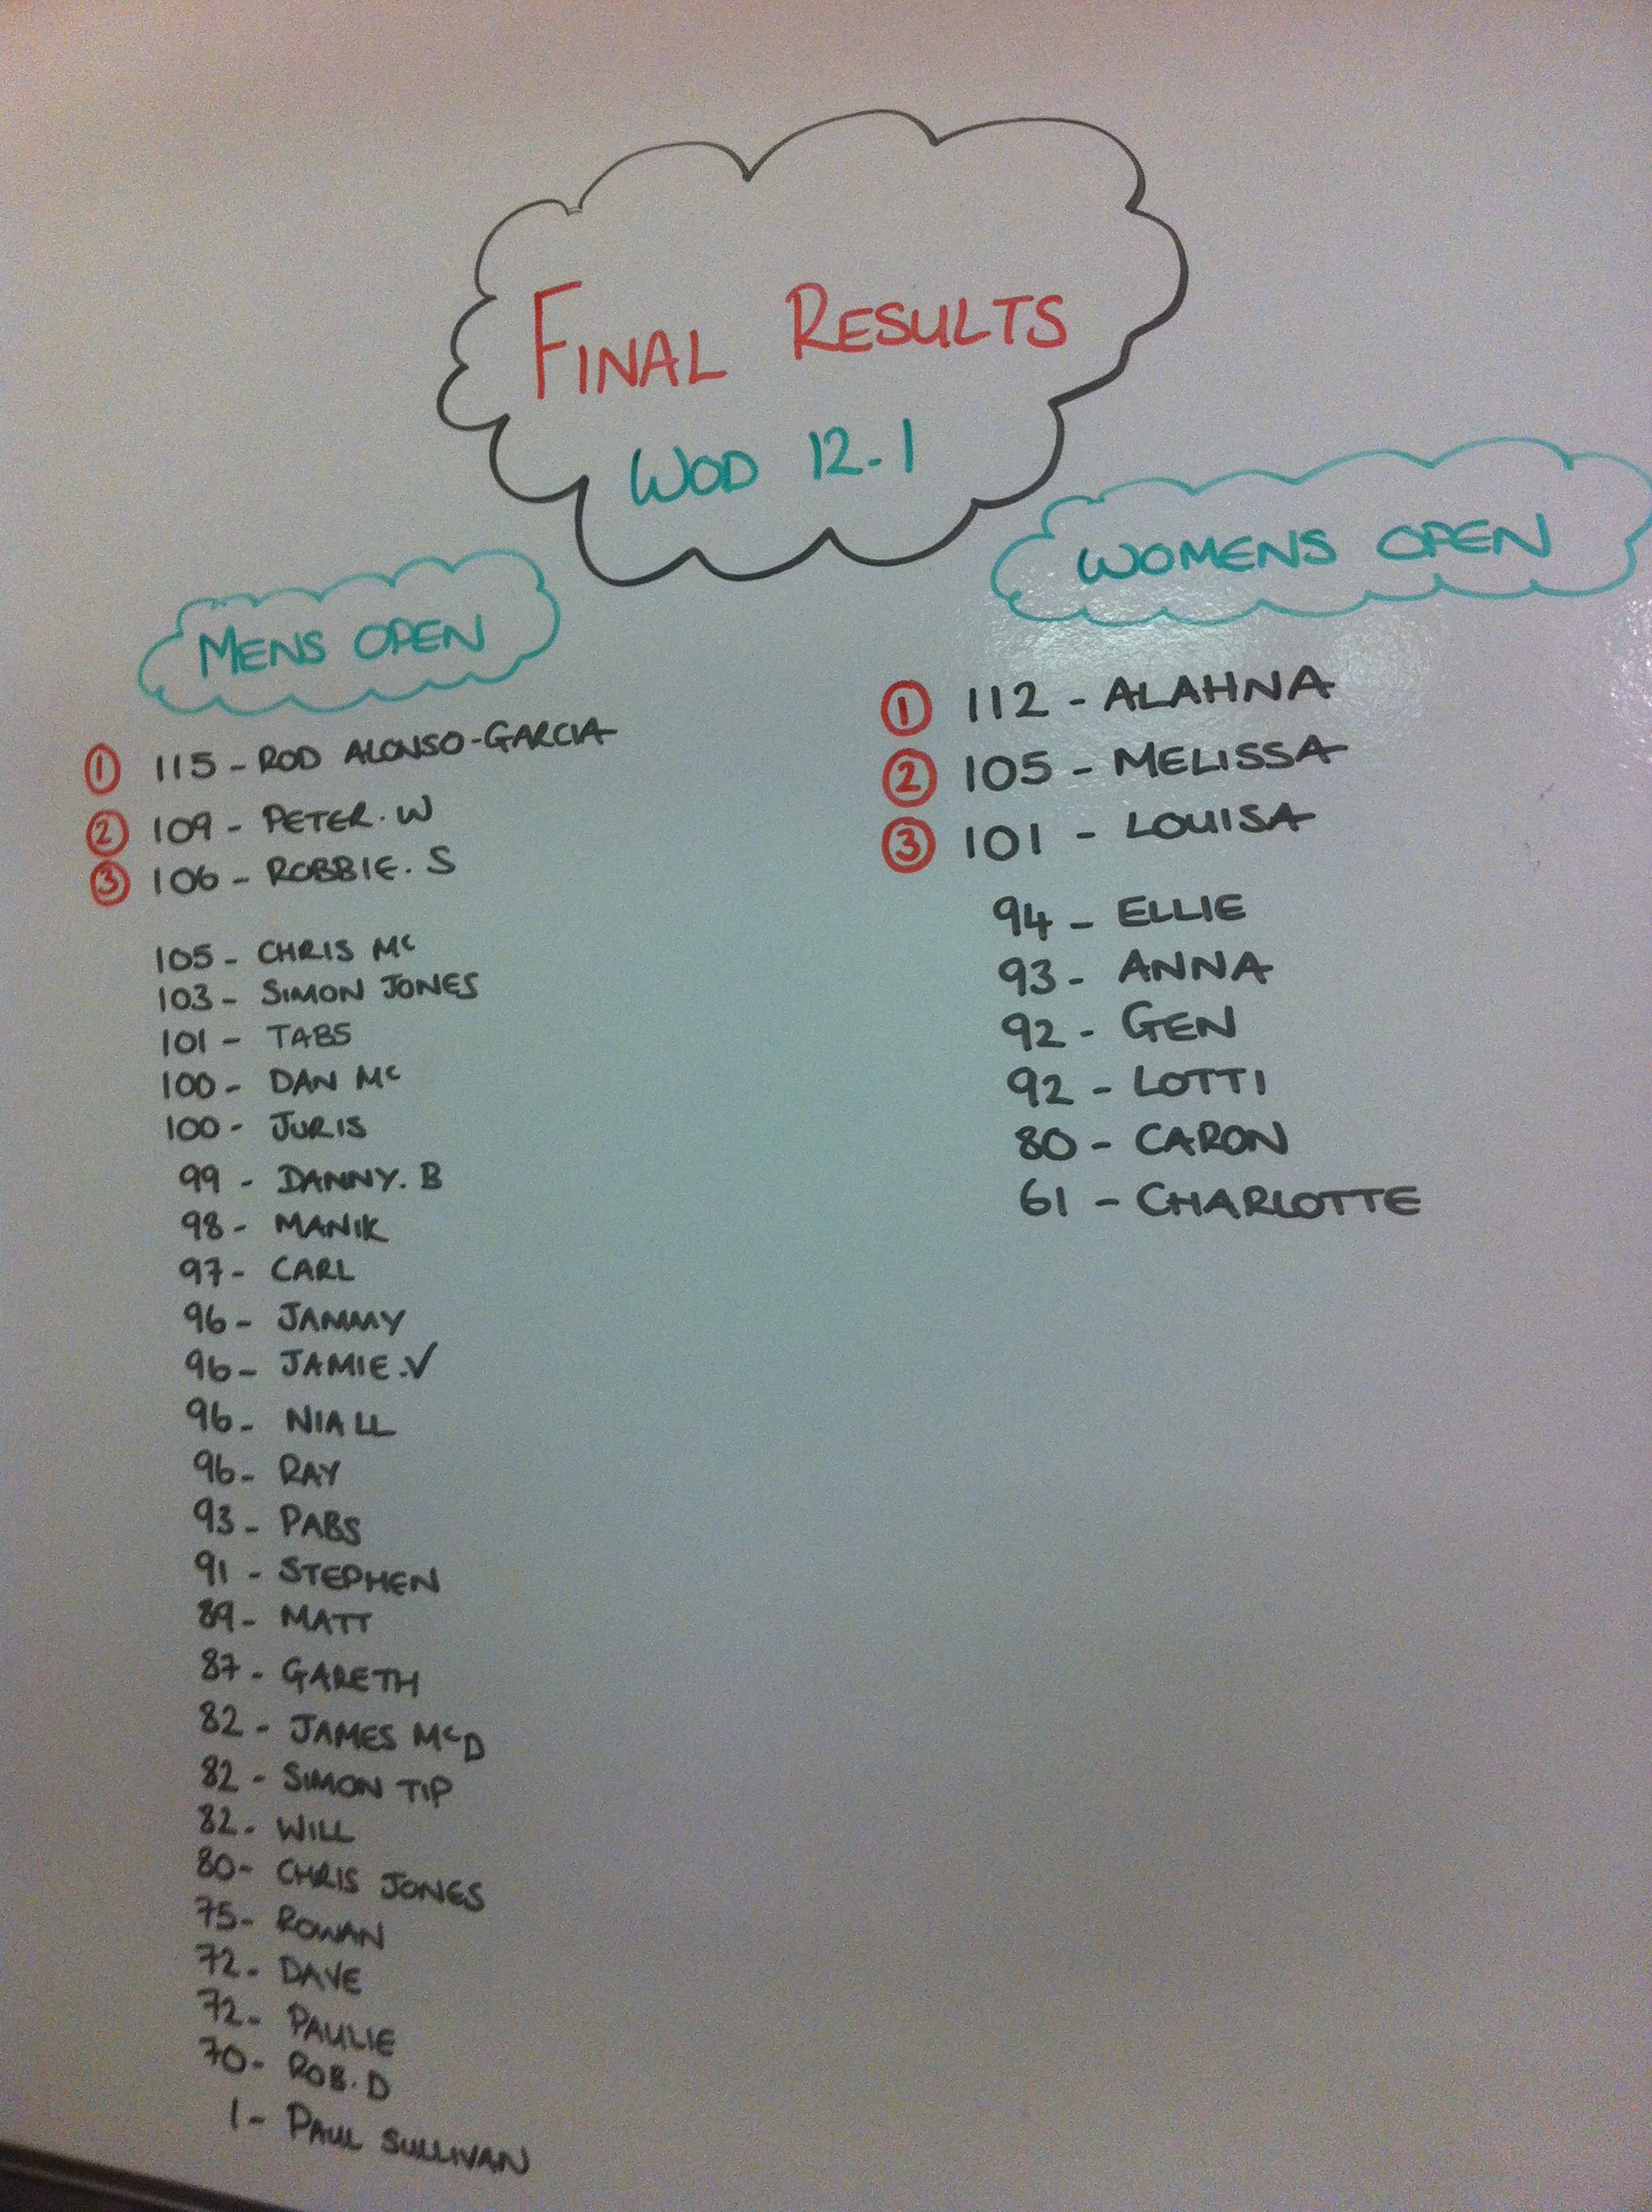 FINAL RESULTS
WOD 12.1
MENS OPEN
1 115 - ROD ALONSO-GARCIA
2 109 - PETER. W
3 106 - ROBBIE. S
105 - CHRIS Mc
103 - SIMON JONES
101 - TABS
100 - DAN Mc
100 - JURIS
99 - DANNY. B
98 - MANIK
97 - CARL
96 - JAMMY
96 - JAMIE.V
96 - NIALL
96 - RAY
93 - PABS
91 - STEPHEN
89 - MATT
87 - GARETH
82 - JAMES McD
82 - SIMON TIP
82 - WILL
80 - CHRIS JONES
75 - ROWAN
72 - DAVE
72 - PAULIE
70 - ROB. D
1 - PAUL SULLIVAN
WOMENS OPEN
1 112 - ALAHNA
2 105 - MELISSA
3 101 - LOUISA
94 - ELLIE
93 - ANNA
92 - GEN
92 - LOTTI
80 - CARON
61 - CHARLOTTE